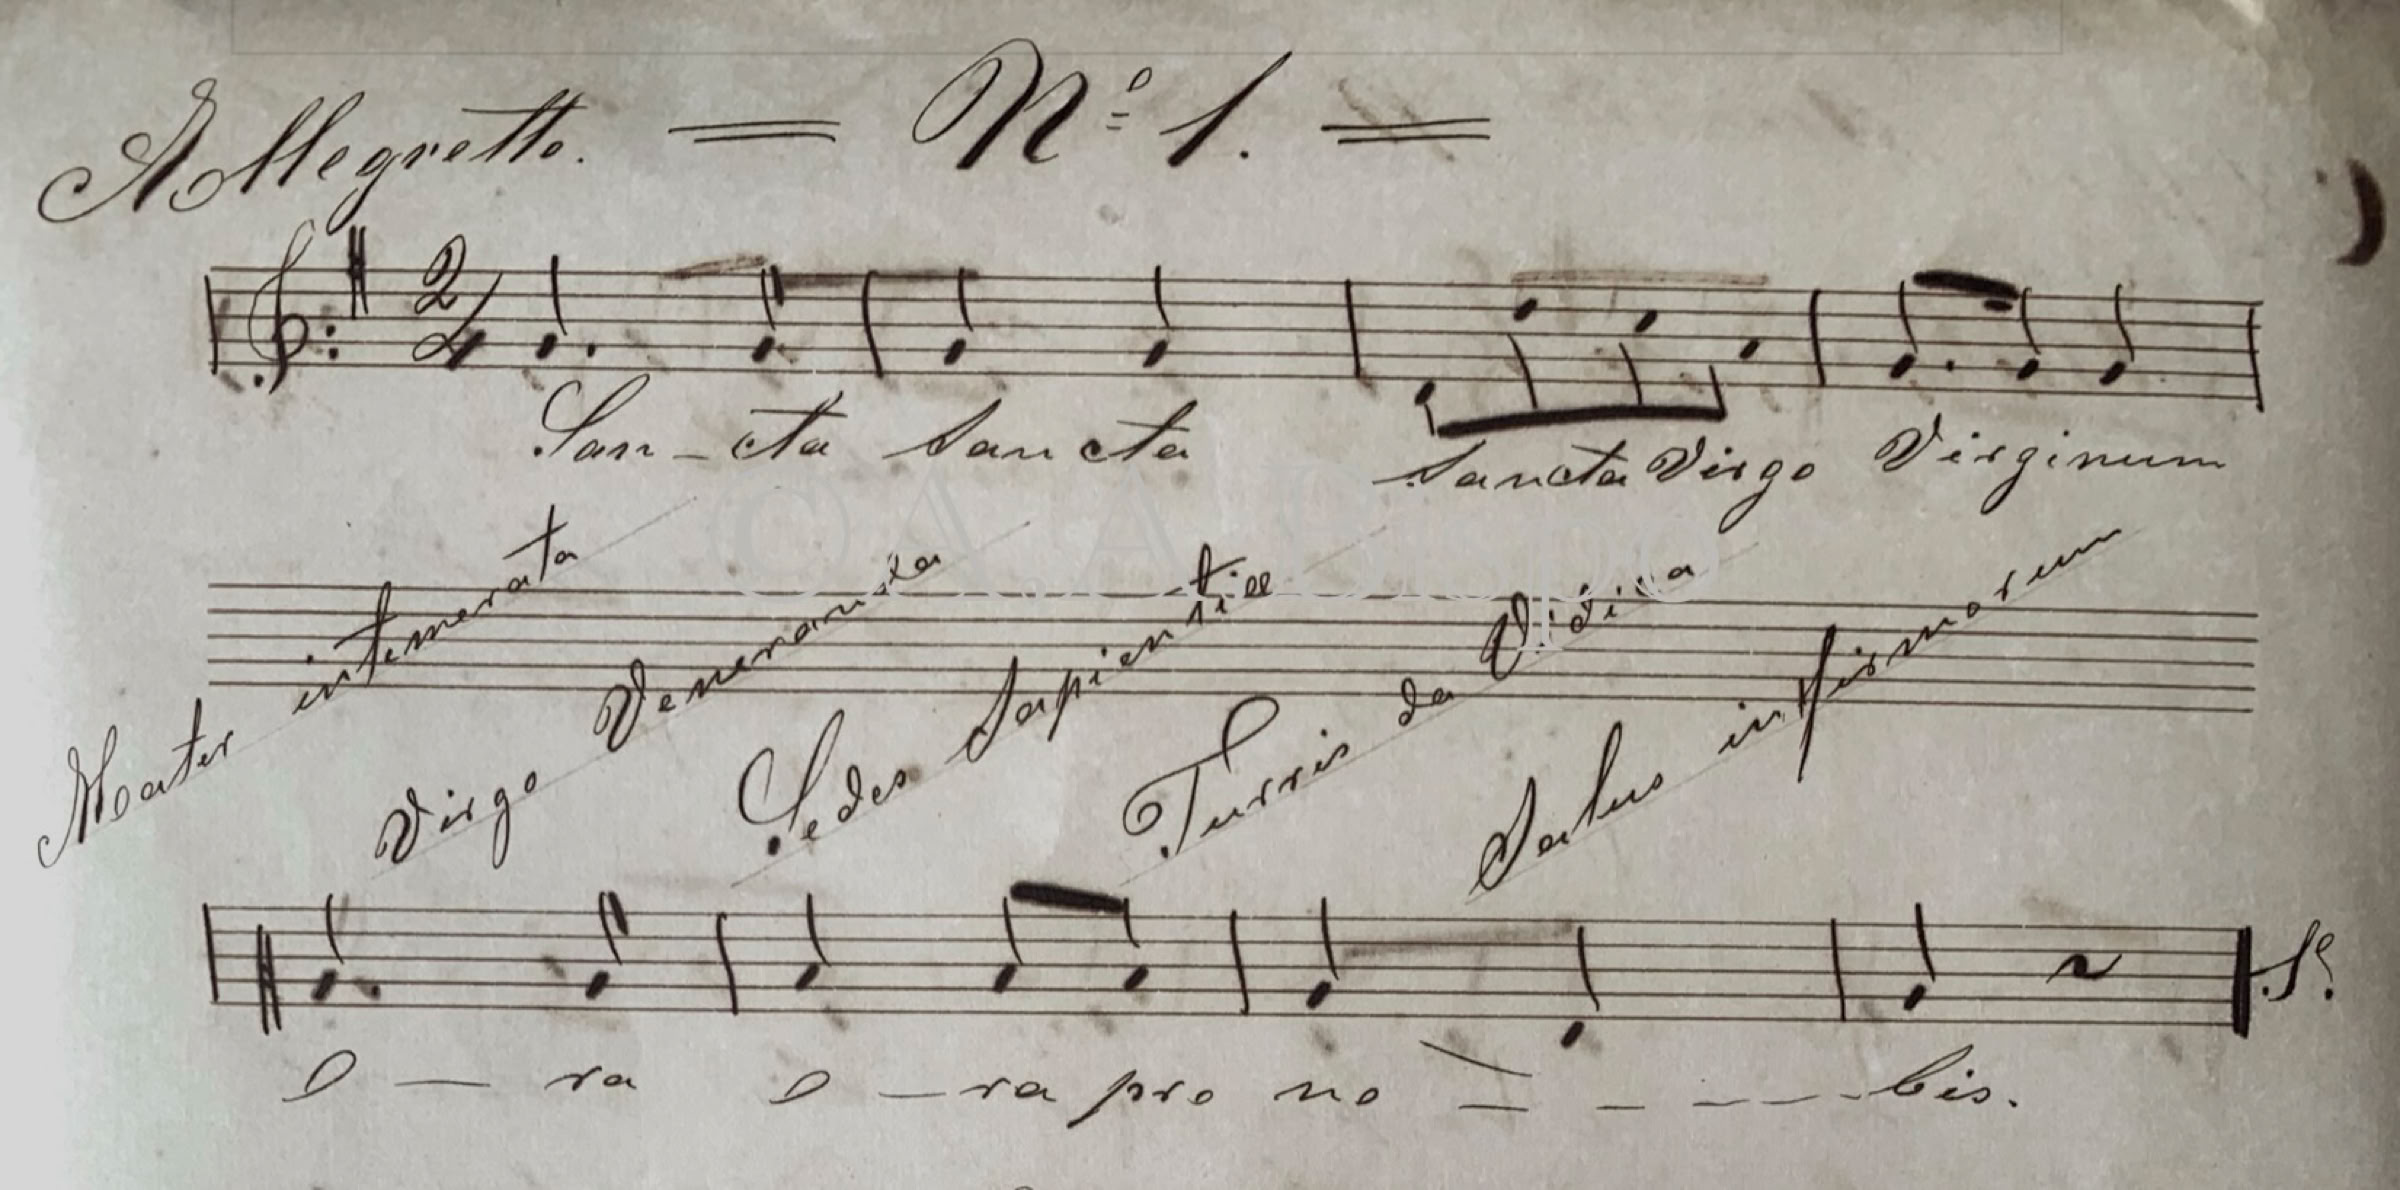 Allegretto. = Nº 1. =
2/4
San - cta Sancta Sancta Virgo Virginum
Mater intemerata
Virgo Veneranda
Sedes Sapientiæ
Turris da Vidica
Salus infirmorum
O - ra O - ra pro no - - - - - bis.